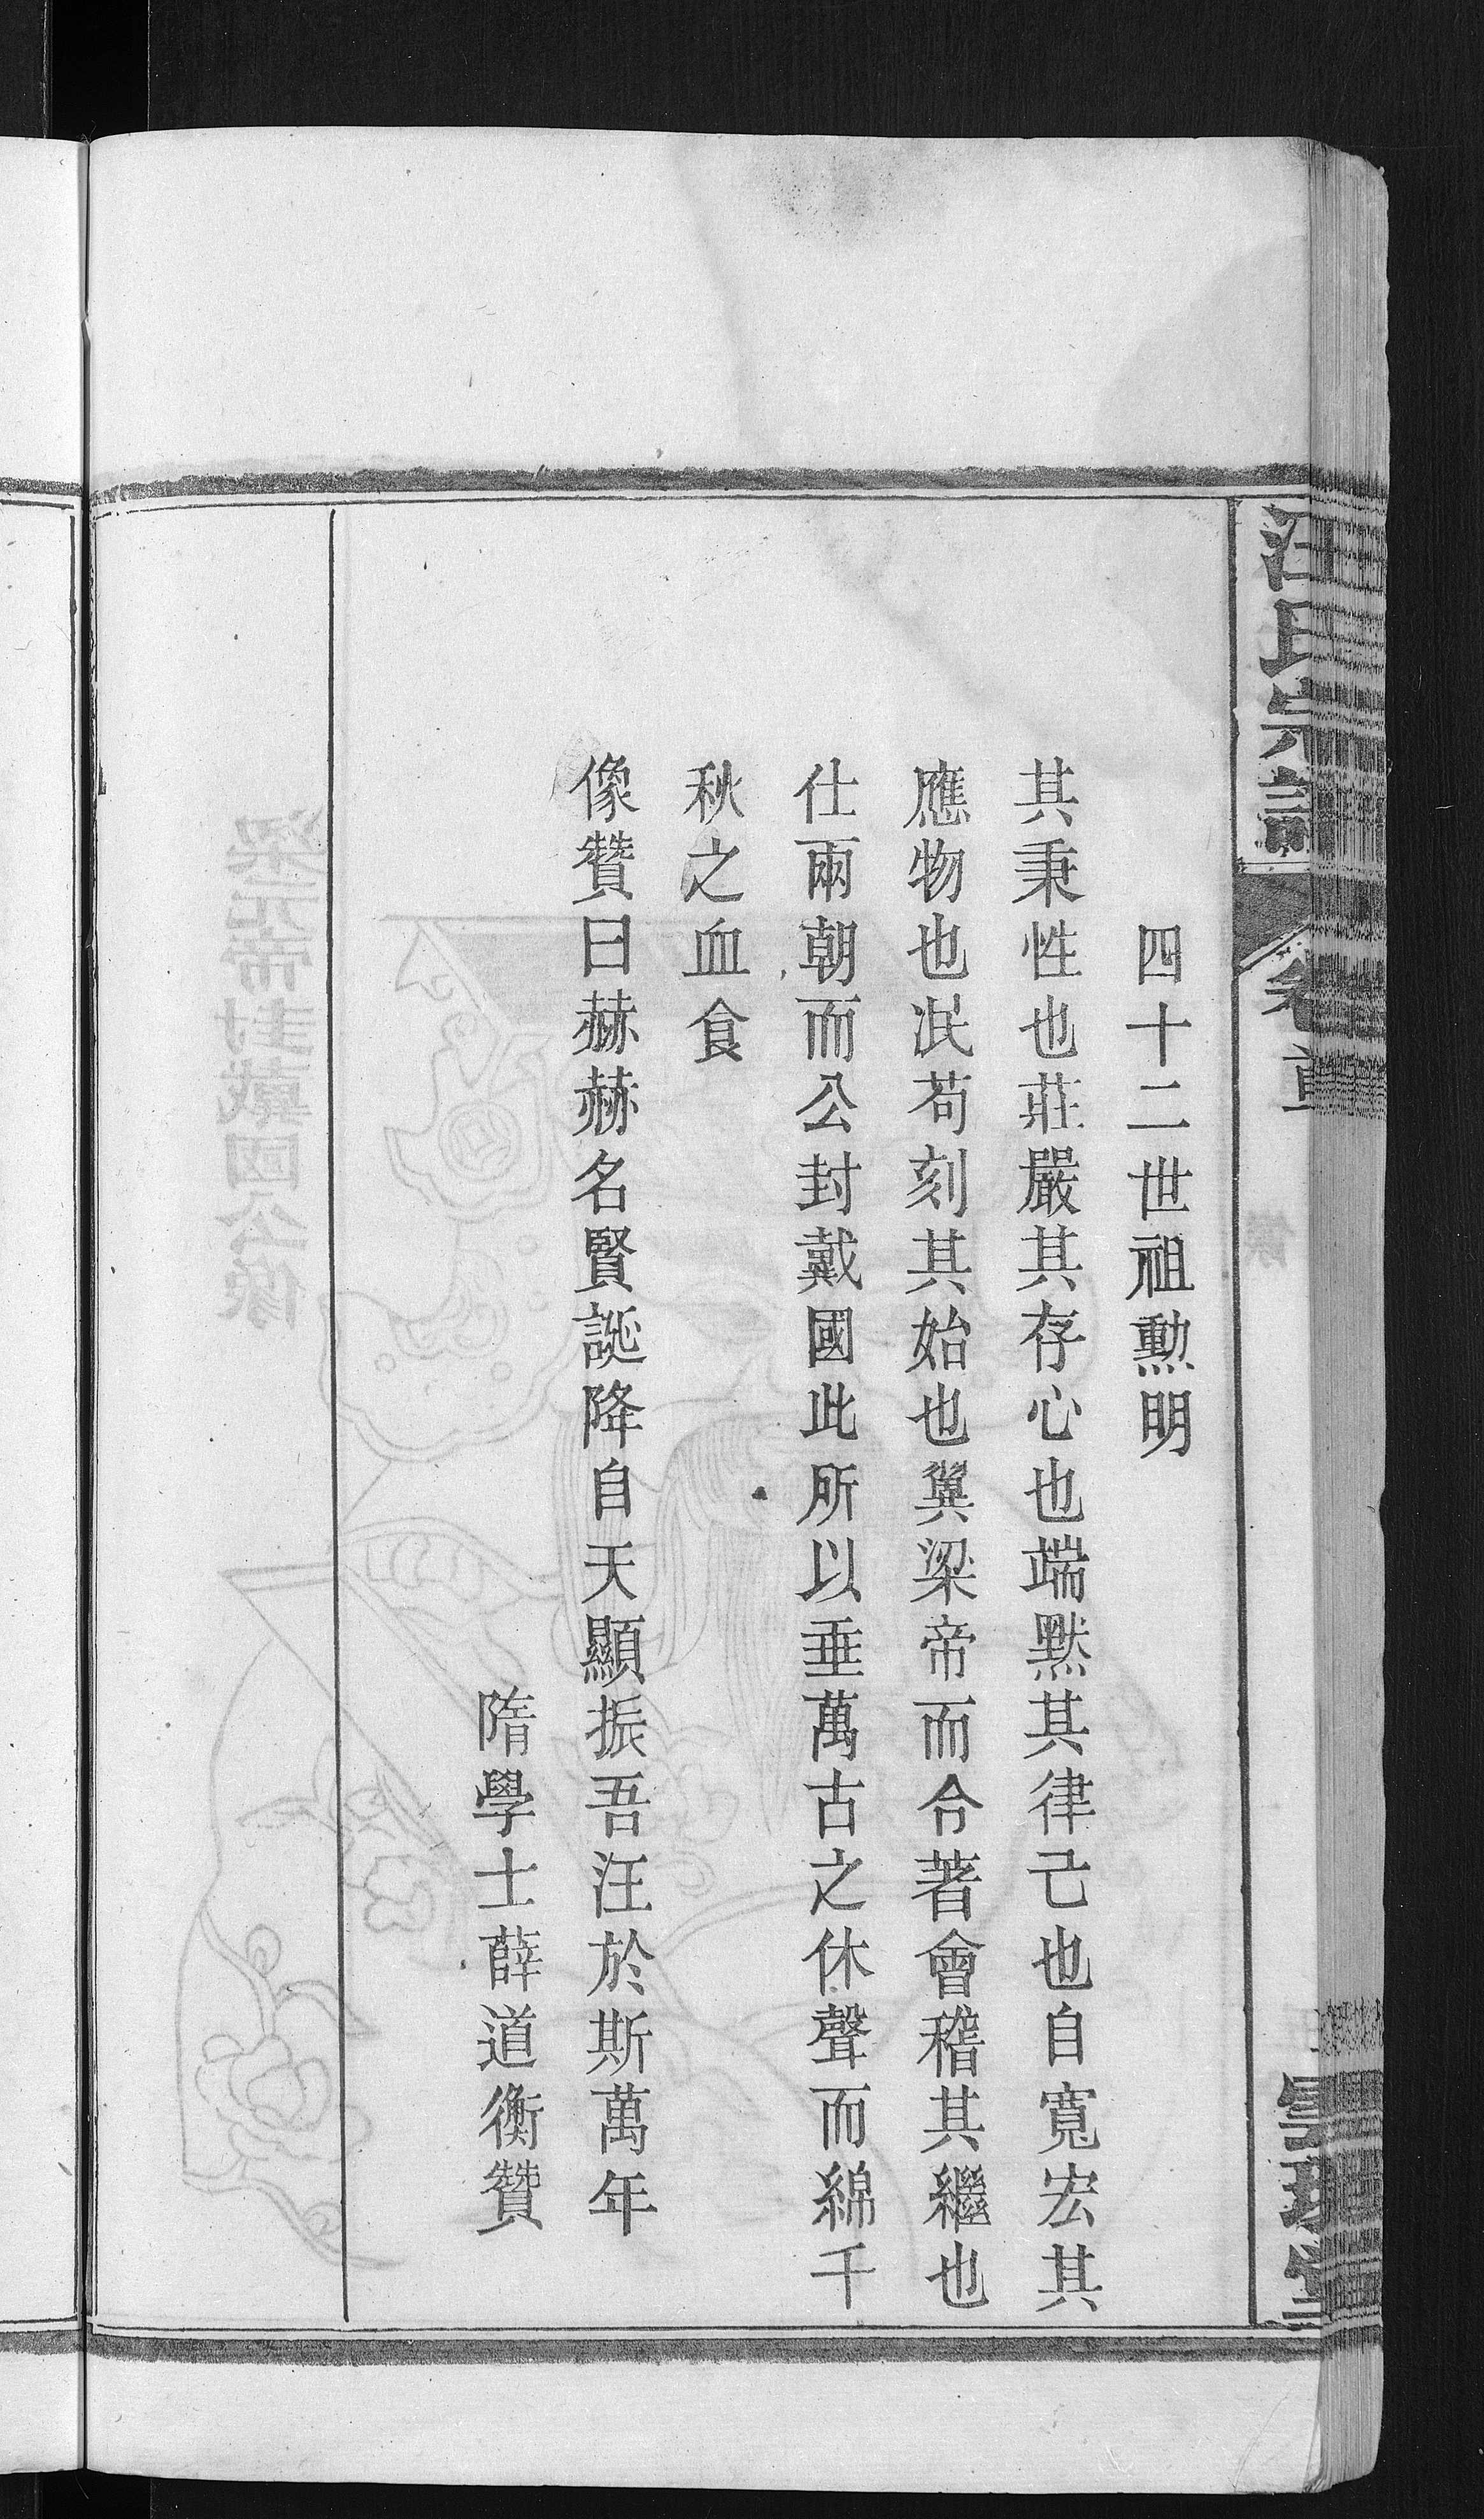 汪氏宗譜
卷首
四十二世祖勲明
其秉性也莊嚴其存心也端默其律己也自寬宏其
應物也泯苟刻其始也翼梁帝而令著會稽其繼也
仕兩朝而公封戴國此所以垂萬古之休聲而綿千
秋之血食
像贊曰赫赫名賢誕降自天顯振吾汪於斯萬年
隋學士薛道衡贊
梁元帝封戴國公像